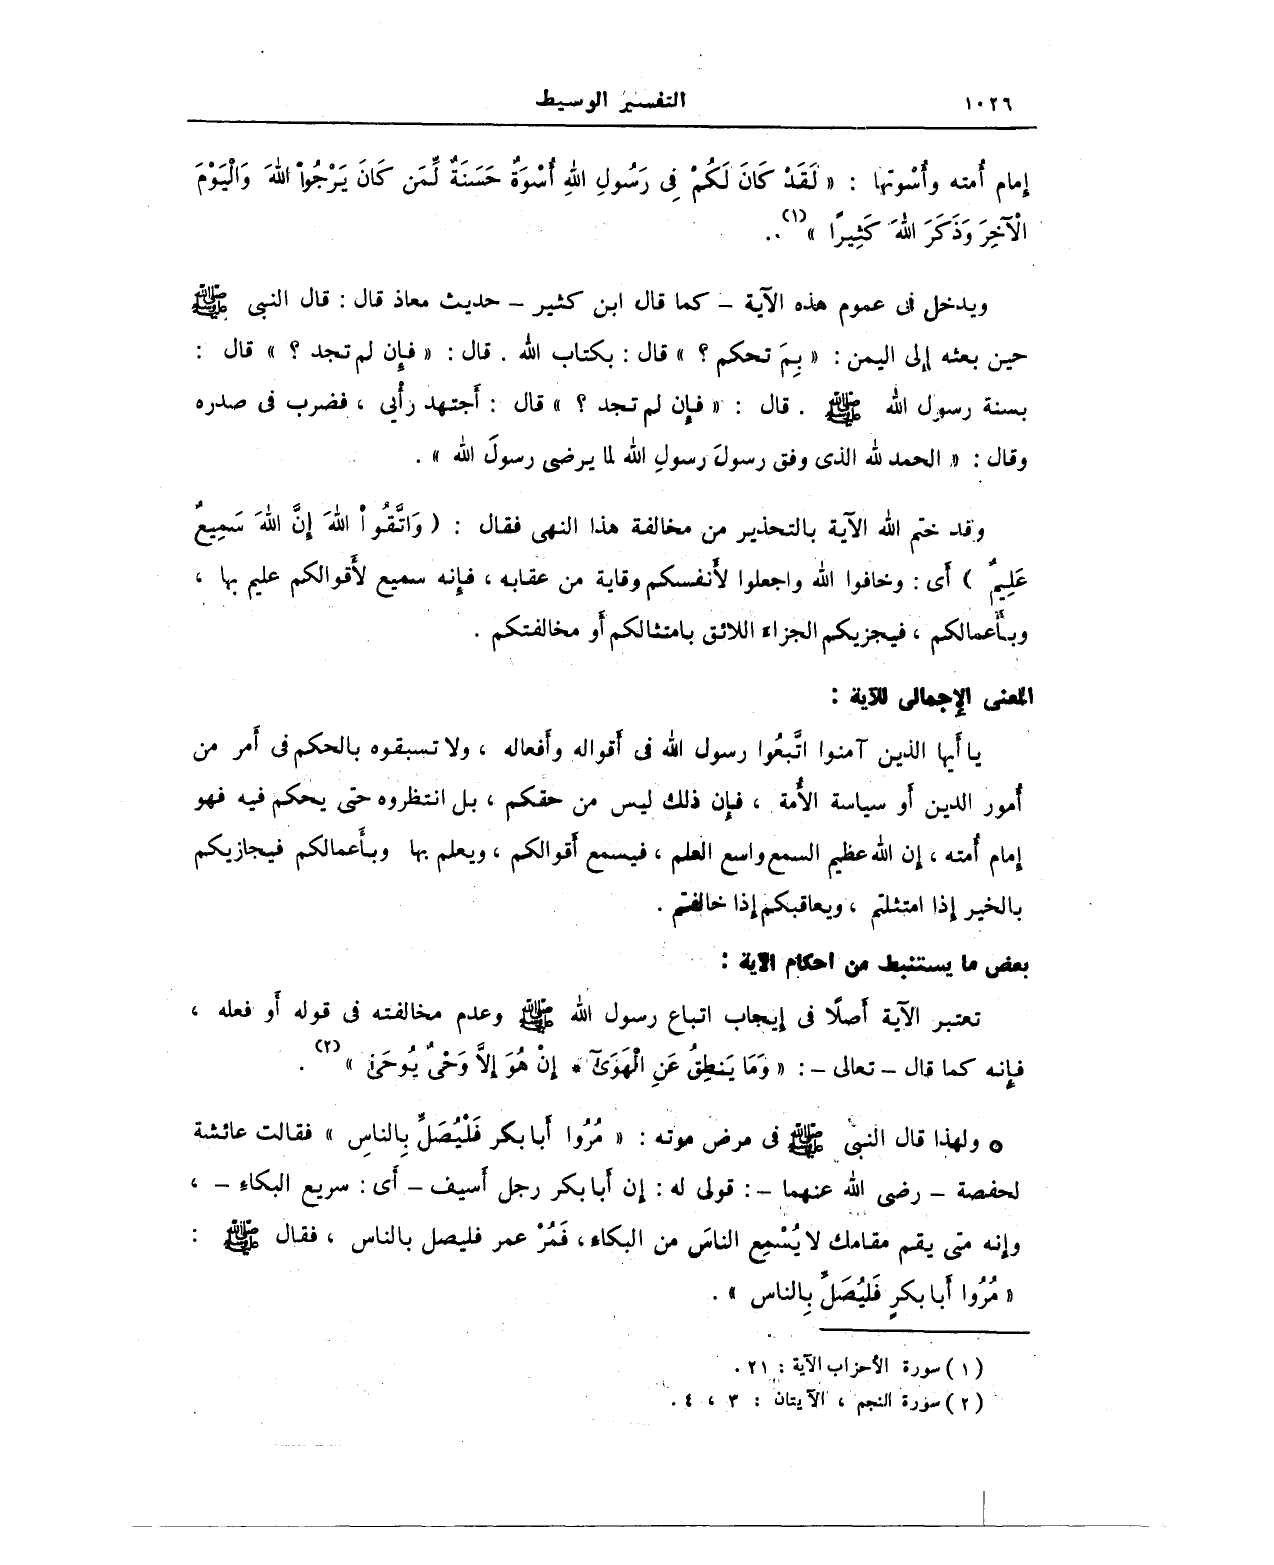 ١٠٢٦ التفسير الوسيط
إمام أُمته وأُسْوتها : « لَقَدْ كَانَ لَكُمْ فِى رَسُولِ اللهِ أُسْوَةٌ حَسَنَةٌ لِّمَن كَانَ يَرْجُواْ اللهَ وَالْيَوْمَ
الْآخِرَ وَذَكَرَ اللهَ كَثِيرًا »(١) ..
ويدخل فى عموم هذه الآية – كما قال ابن كثير – حديث معاذ قال : قال النبى ﷺ
حين بعثه إلى اليمن : « بِمَ تحكم ؟ » قال : بكتاب الله . قال : « فإن لم تجد ؟ » قال :
بسنة رسول الله ﷺ . قال : « فإن لم تجد ؟ » قال : أجتهد رأْيي ، فضرب فى صدره
وقال : « الحمد لله الذى وفق رسولَ رسولِ الله لما يرضى رسولَ الله » .
وقد ختم الله الآية بالتحذير من مخالفة هذا النهى فقال : ( وَاتَّقُواْ اللهَ إِنَّ اللهَ سَمِيعٌ
عَلِيمٌ ) أَى : وخافوا الله واجعلوا لأَنفسكم وقاية من عقابه ، فإنه سميع لأَقوالكم عليم بها ،
وبأَعمالكم ، فيجزيكم الجزاء اللائق بامتثالكم أَو مخالفتكم .
المعنى الإجمالى للآية :
يا أَيها الذين آمنوا اتَّبعُوا رسول الله فى أَقواله وأَفعاله ، ولا تسبقوه بالحكم فى أَمر من
أُمور الدين أَو سياسة الأُمة ، فإن ذلك ليس من حقكم ، بل انتظروه حتى يحكم فيه فهو
إمام أُمته ، إن الله عظيم السمع واسع العلم ، فيسمع أَقوالكم ، ويعلم بها وبأَعمالكم فيجازيكم
بالخير إذا امتثلتم ، ويعاقبكم إذا خالفتم .
بعض ما يستنبط من احكام الآية :
تعتبر الآية أَصلًا فى إيجاب اتباع رسول الله ﷺ وعدم مخالفته فى قوله أَو فعله ،
فإنه كما قال – تعالى – : « وَمَا يَنطِقُ عَنِ الْهَوَىٰٓ * إِنْ هُوَ إِلاَّ وَحْىٌ يُوحَىٰ »(٢) .
• ولهذا قال النبى ﷺ فى مرض موته : « مُرُوا أَبا بكر فَلْيُصَلِّ بِالناسِ » فقالت عائشة
لحفصة – رضى الله عنهما – : قولى له : إن أَبا بكر رجل أَسيف – أى : سريع البكاء – ،
وإنه متى يقم مقامك لا يُسْمِع الناسَ من البكاء ، فَمُرْ عمر فليصل بالناس ، فقال ﷺ :
« مُرُوا أَبا بكرٍ فَليُصَلِّ بِالناس » .
( ١ ) سورة الأحزاب الآية : ٢١ .
( ٢ ) سورة النجم ، الآيتان : ٣ ، ٤ .